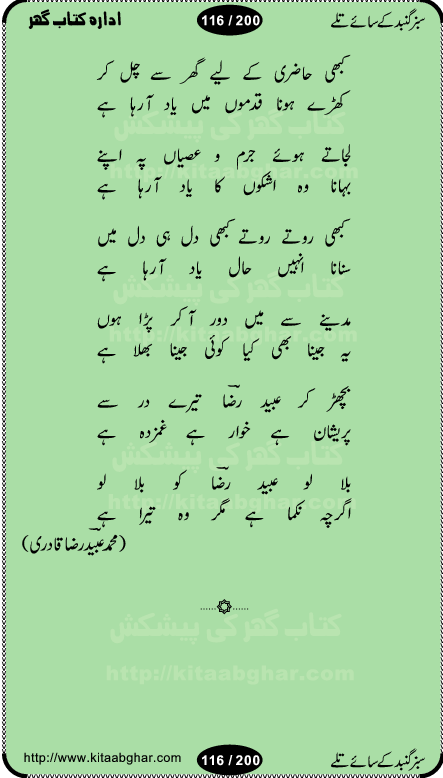 سبز گنبد کے سائے تلے
116 / 200
ادارہ کتاب گھر
کبھی حاضری کے لیے گھر سے چل کر
کھڑے ہونا قدموں میں یاد آرہا ہے
لجاتے ہوئے جرم و عصیاں پہ اپنے
بہانا وہ اشکوں کا یاد آرہا ہے
کبھی روتے روتے کبھی دل ہی دل میں
سنانا انہیں حال یاد آرہا ہے
مدینے سے میں دور آ کر پڑا ہوں
یہ جینا بھی کیا کوئی جینا بھلا ہے
بچھڑ کر عبید رضؔا تیرے در سے
پریشان ہے خوار ہے غمزدہ ہے
بلا لو عبید رضؔا کو بلا لو
اگرچہ نکما ہے مگر وہ تیرا ہے
(محمد عبید رضا قادری)
کتاب گھر کی پیشکش
http://kitaabghar.com
کتاب گھر کی پیشکش
http://kitaabghar.com
کتاب گھر کی پیشکش
http://kitaabghar.com
کتاب گھر کی پیشکش
http://kitaabghar.com
سبز گنبد کے سائے تلے
116 / 200
http://www.kitaabghar.com